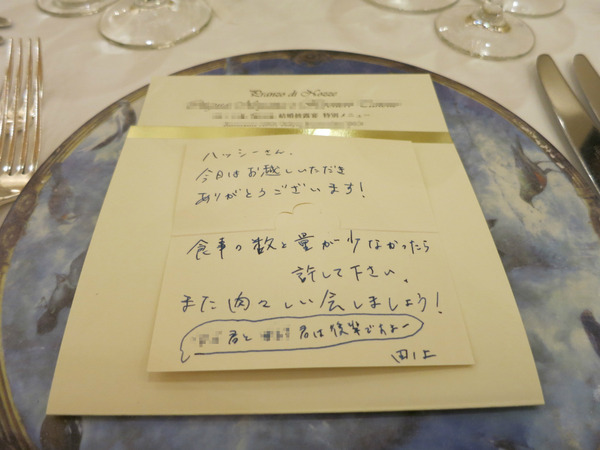 Pranzo di Nozze
結婚披露宴 特別メニュー
ハッシーさん、
今日はお越しいただき
ありがとうございます!
食事の数と量が少なかったら
許して下さい。
また肉々しい会しましょう!
君と 君は後半ですよー